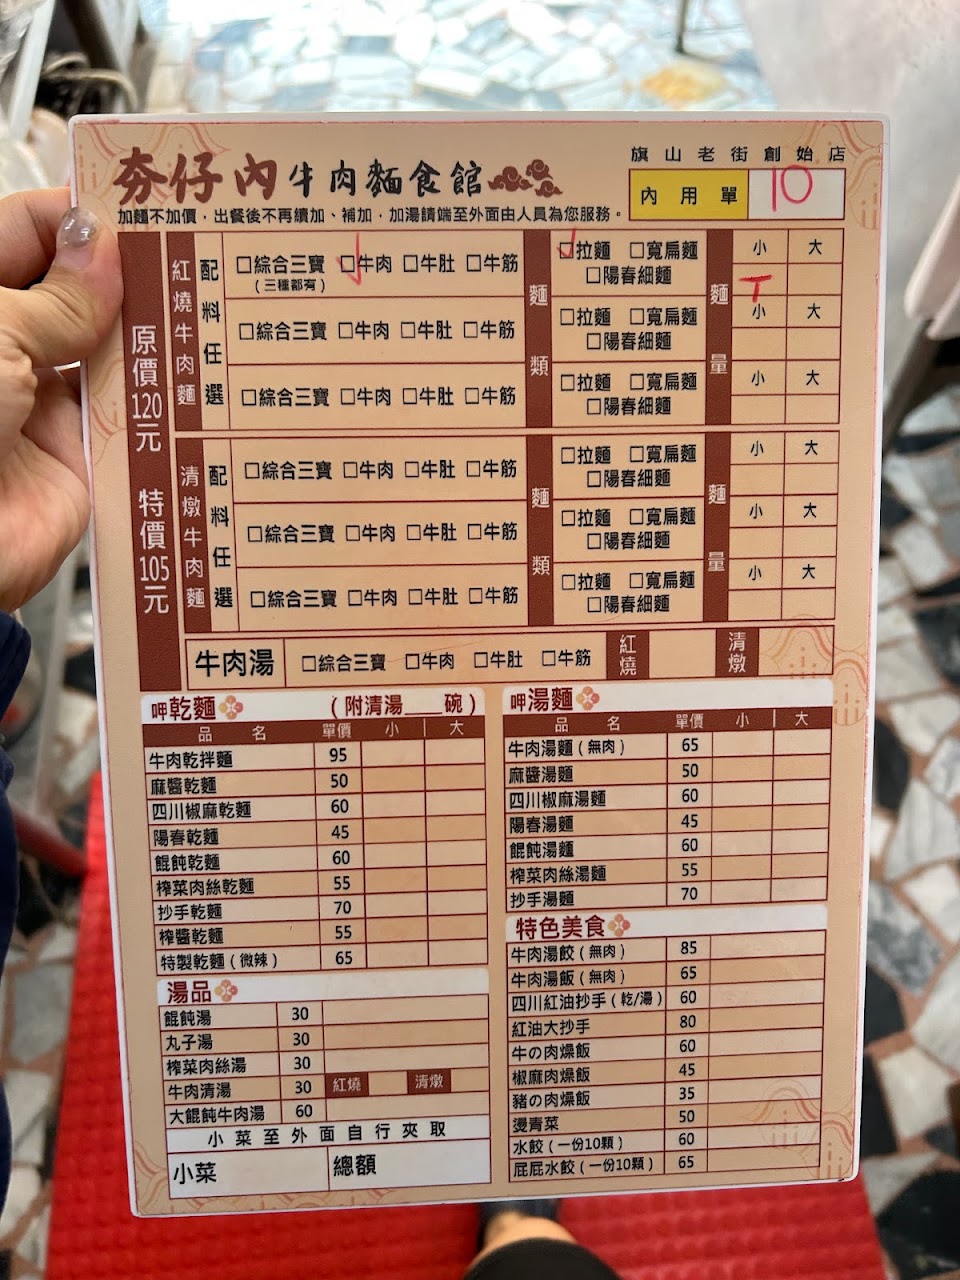 夯仔內牛肉麵食館
旗山老街創始店
內用單 10
加麵不加價，出餐後不再續加、補加，加湯請端至外面由人員為您服務。
原價120元 特價105元
紅燒牛肉麵 配料任選 麵類 麵量
□綜合三寶 □牛肉 □牛肚 □牛筋 □拉麵 □寬扁麵 小 大
(三種都有) □陽春細麵
□綜合三寶 □牛肉 □牛肚 □牛筋 □拉麵 □寬扁麵 小 大
□陽春細麵
□綜合三寶 □牛肉 □牛肚 □牛筋 □拉麵 □寬扁麵 小 大
□陽春細麵
清燉牛肉麵 配料任選 麵類 麵量
□綜合三寶 □牛肉 □牛肚 □牛筋 □拉麵 □寬扁麵 小 大
□陽春細麵
□綜合三寶 □牛肉 □牛肚 □牛筋 □拉麵 □寬扁麵 小 大
□陽春細麵
□綜合三寶 □牛肉 □牛肚 □牛筋 □拉麵 □寬扁麵 小 大
□陽春細麵
牛肉湯 □綜合三寶 □牛肉 □牛肚 □牛筋 紅燒 清燉
呷乾麵 (附清湯___碗)
品名 單價 小 大
牛肉乾拌麵 95
麻醬乾麵 50
四川椒麻乾麵 60
陽春乾麵 45
餛飩乾麵 60
榨菜肉絲乾麵 55
抄手乾麵 70
榨醬乾麵 55
特製乾麵(微辣) 65
湯品
餛飩湯 30
丸子湯 30
榨菜肉絲湯 30
牛肉清湯 30 紅燒 清燉
大餛飩牛肉湯 60
小菜至外面自行夾取
小菜 總額
呷湯麵
品名 單價 小 大
牛肉湯麵(無肉) 65
麻醬湯麵 50
四川椒麻湯麵 60
陽春湯麵 45
餛飩湯麵 60
榨菜肉絲湯麵 55
抄手湯麵 70
特色美食
牛肉湯餃(無肉) 85
牛肉湯飯(無肉) 65
四川紅油抄手(乾/湯) 60
紅油大抄手 80
牛の肉燥飯 60
椒麻肉燥飯 45
豬の肉燥飯 35
燙青菜 50
水餃(一份10顆) 60
屁屁水餃(一份10顆) 65